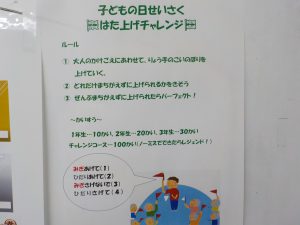 子どもの日せいさく
はた上げチャレンジ
ルール
① 大人のかけごえにあわせて、りょう手のこいのぼりを
上げていく。
② どれだけまちがえずに上げられるかをきそう
③ ぜんぶまちがえずに上げられたらパーフェクト!
～かいすう～
1年生…10かい、2年生…20かい、3年生…30かい
チャレンジコース…100かい(ノーミスでできたらレジェンド!)
みぎあげて(1)
ひだりあげて(2)
みぎさげないで(3)
ひだりさげて(4)